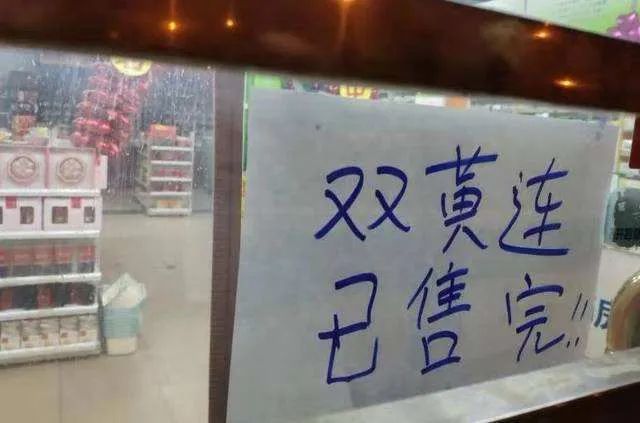 双黄连
已售完!!